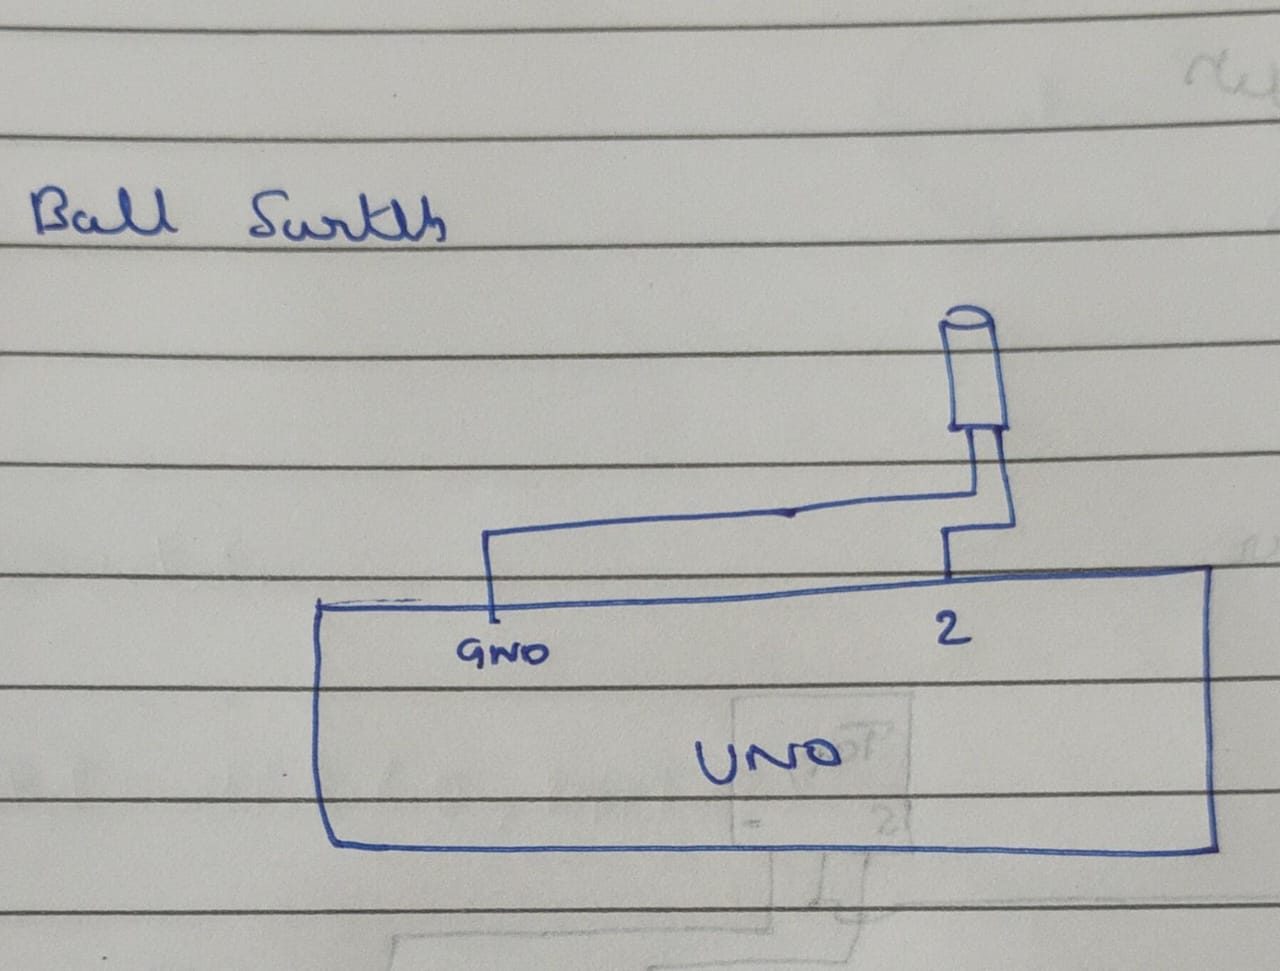 Ball Switch
GND
2
UNO